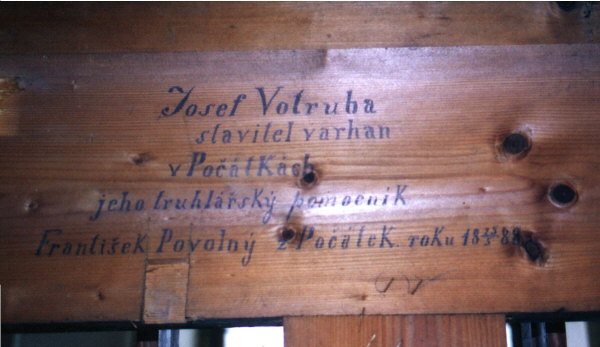 Josef Votruba
stavitel varhan
v Počátkách
jeho truhlářský pomocník
František Povolný z Počátek. roku 18 88